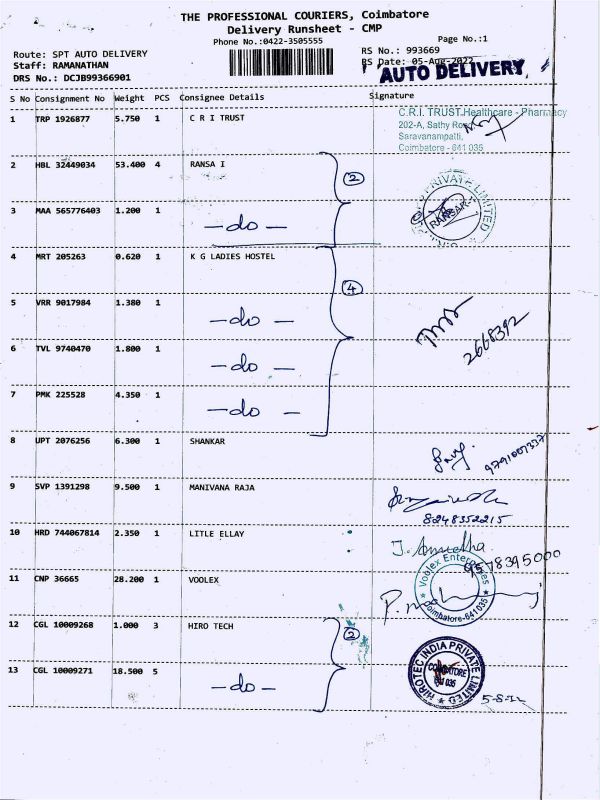 THE PROFESSIONAL COURIERS, Coimbatore
Delivery Runsheet - CMP
Phone No.:0422-3505555
Page No.:1
Route: SPT AUTO DELIVERY
RS No.: 993669
Staff: RAMANATHAN
RS Date: 05-Aug-2022
DRS No.: DCJB99366901
AUTO DELIVERY
S No Consignment No Weight PCS Consignee Details Signature
1 TRP 1926877 5.750 1 C R I TRUST
C.R.I. TRUST.Healthcare - Pharmacy
202-A, Sathy Road
Saravanampatti,
Coimbatore - 641 035
2 HBL 32449034 53.400 4 RANSA I
2
3 MAA 565776403 1.200 1 -do-
PRIVATE LIMITED
4 MRT 205263 0.620 1 K G LADIES HOSTEL
4
5 VRR 9017984 1.380 1 -do-
2668392
6 TVL 9740470 1.800 1 -do-
7 PMK 225528 4.350 1 -do-
8 UPT 2076256 6.300 1 SHANKAR
9791007337
9 SVP 1391298 9.500 1 MANIVANA RAJA
8248352215
10 HRD 744067814 2.350 1 LITLE ELLAY
J. Amutha
9578395000
11 CNP 36665 28.200 1 VOOLEX
Voolex Enterprises
Coimbatore-641035
12 CGL 10009268 1.000 3 HIRO TECH
2
13 CGL 10009271 18.500 5 -do-
HIROTEC INDIA PRIVATE LIMITED
COIMBATORE
641 035
5-8-22